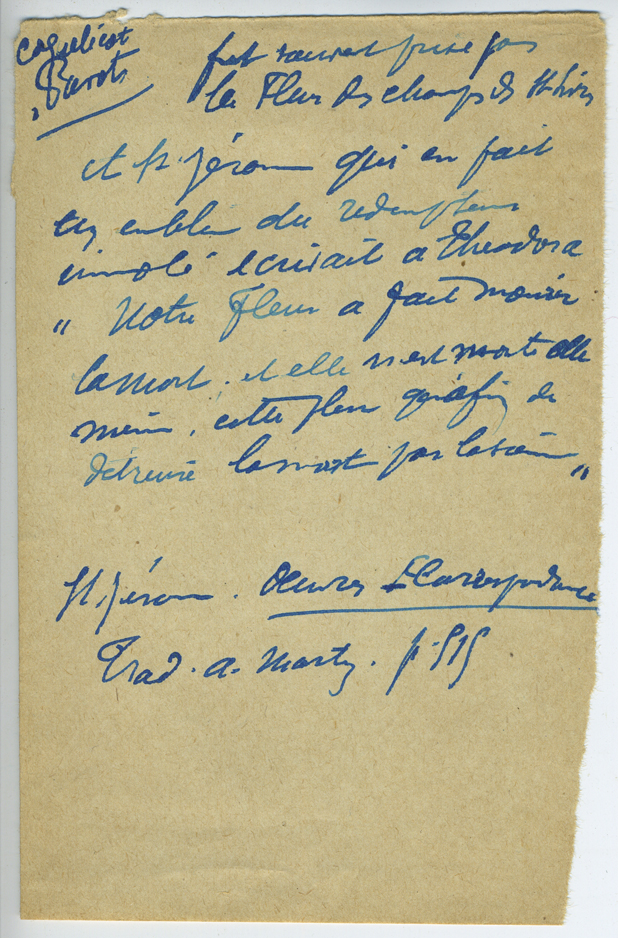 coquelicot
, Pavots
fut souvent prise pour
la Fleur des champs des St Livres
et St. Jérome qui en fait
un emblème du rédempteur
immolé écrivait a Theodora
" Notre Fleur a fait mourir
la mort, et elle n'est morte elle
même, cette fleur qu'afin de
détruire la mort par la sienne "
St. Jérome. Oeuvres Correspondance
Trad. a. Marty. p. 515